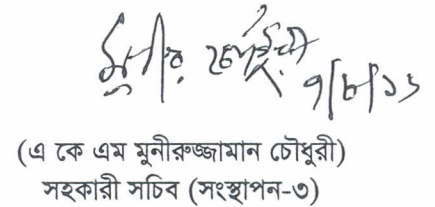 মুনীর চৌধুরী
৭/৮/১৬
(এ কে এম মুনীরুজ্জামান চৌধুরী)
সহকারী সচিব (সংস্থাপন-৩)